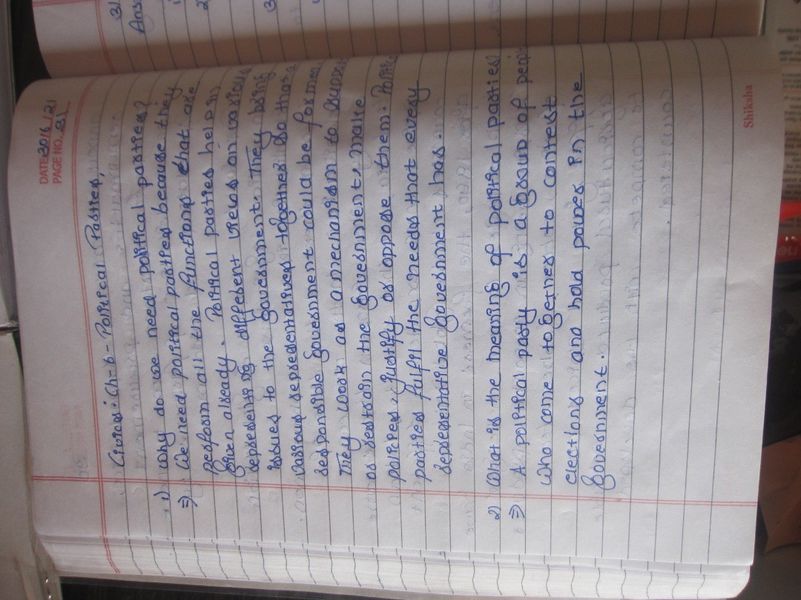 DATE: 20/6/21
PAGE NO.: 31
Civics: Ch-6- Political Parties,
1) Why do we need political parties?
⇒ We need political parties because they
perform all the functions that are
given already. Political parties help in
representing different views on various
issues to the government. They bring
various representatives together so that a
responsible government could be formed.
They work as a mechanism to
or restrain the government, make
policies, justify or oppose them.
parties fulfil the needs that every
representative government has.
2) What is the meaning of political parties?
⇒ A political party is a group of people
who come together to contest
elections and hold power in the
government.
Shiksha
Ans